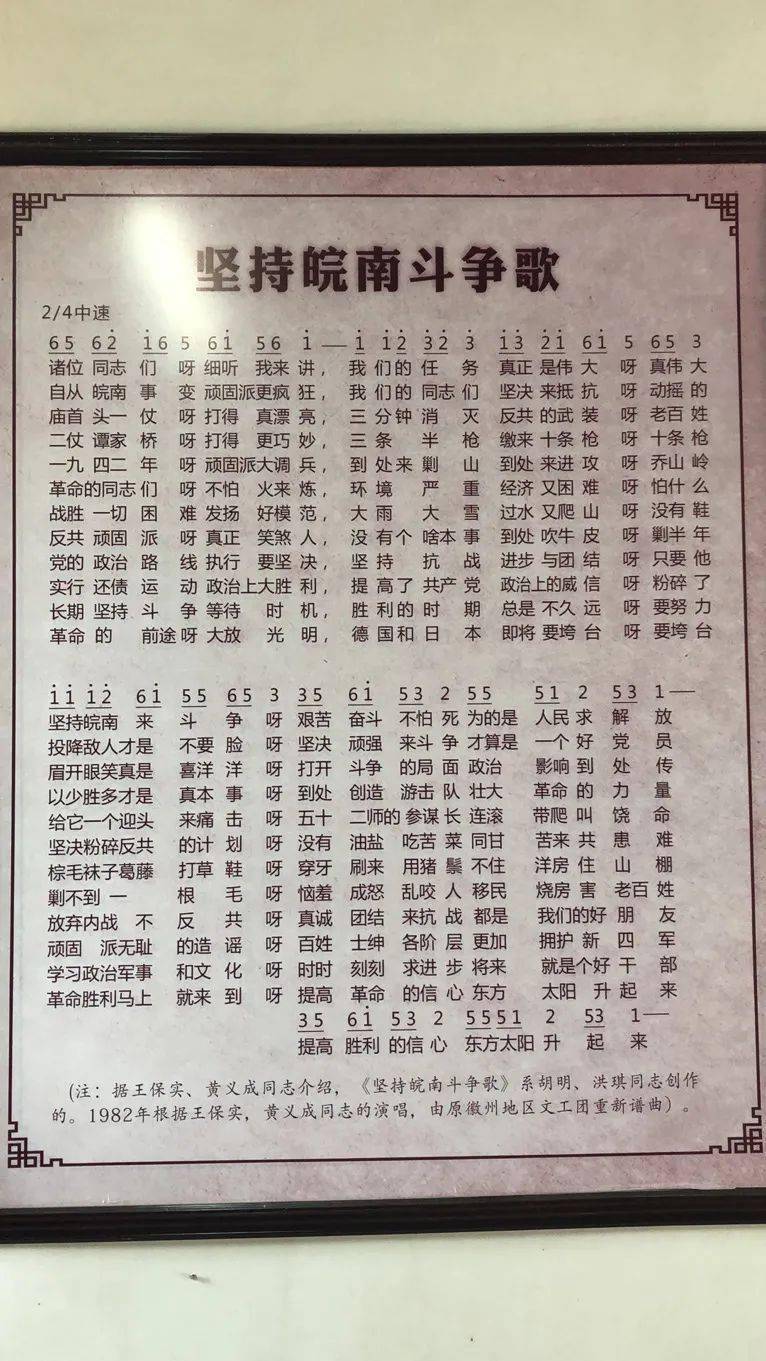 坚持皖南斗争歌
2/4中速
65 62̇ 1̇6 5 61̇ 56 1̇— 1̇ 1̇2̇ 3̇2̇ 3̇ 1̇3̇ 2̇1̇ 61̇ 5 65 3
诸位 同志 们 呀 细听 我来 讲, 我们的 任 务 真正 是伟 大 呀 真伟大
自从 皖南 事 变 顽固派更疯 狂, 我们的 同志们 坚决 来抵 抗 呀 动摇的
庙首 头一 仗 呀 打得 真漂 亮, 三分钟 消 灭 反共 的武 装 呀 老百姓
二仗 谭家 桥 呀 打得 更巧 妙, 三条 半 枪 缴来 十条 枪 呀 十条枪
一九 四二 年 呀 顽固派大调 兵, 到处来 剿 山 到处 来进 攻 呀 乔山岭
革命的同志 们 呀 不怕 火来 炼, 环境 严 重 经济 又困 难 呀 怕什么
战胜 一切 困 难 发扬 好模 范, 大雨 大 雪 过水 又爬 山 呀 没有鞋
反共 顽固 派 呀 真正 笑煞 人, 没有个 啥本 事 到处 吹牛 皮 呀 剿半年
党的 政治 路 线 执行 要坚 决, 坚持 抗 战 进步 与团 结 呀 只要他
实行 还债 运 动 政治上大胜 利, 提高了 共产 党 政治上的威 信 呀 粉碎了
长期 坚持 斗 争 等待 时 机, 胜利的 时 期 总是 不久 远 呀 要努力
革命 的 前途 呀 大放 光 明, 德国和 日 本 即将 要垮 台 呀 要垮台
1̇1̇ 1̇2̇ 61̇ 55 65 3 35 61̇ 53 2 55 51 2 53 1—
坚持皖南 来 斗 争 呀 艰苦 奋斗 不怕 死 为的是 人民 求 解 放
投降敌人才是 不要 脸 呀 坚决 顽强 来斗 争 才算是 一个 好 党 员
眉开眼笑真是 喜洋 洋 呀 打开 斗争 的局 面 政治 影响 到 处 传
以少胜多才是 真本 事 呀 到处 创造 游击 队 壮大 革命 的 力 量
给它一个迎头 来痛 击 呀 五十 二师的 参谋 长 连滚 带爬 叫 饶 命
坚决粉碎反共 的计 划 呀 没有 油盐 吃苦 菜 同甘 苦来 共 患 难
棕毛袜子葛藤 打草 鞋 呀 穿牙 刷来 用猪 鬃 不住 洋房 住 山 棚
剿不到 一 根 毛 呀 恼羞 成怒 乱咬 人 移民 烧房 害 老百 姓
放弃内战 不 反 共 呀 真诚 团结 来抗 战 都是 我们 的好 朋 友
顽固 派无耻 的造 谣 呀 百姓 士绅 各阶 层 更加 拥护 新 四 军
学习政治军事 和文 化 呀 时时 刻刻 求进 步 将来 就是 个好 干 部
革命胜利马上 就来 到 呀 提高 革命 的信 心 东方 太阳 升 起 来
35 61̇ 53 2 5551 2 53 1—
提高 胜利 的信 心 东方太阳 升 起 来
(注：据王保实、黄义成同志介绍，《坚持皖南斗争歌》系胡明、洪琪同志创作
的。1982年根据王保实，黄义成同志的演唱，由原徽州地区文工团重新谱曲）。